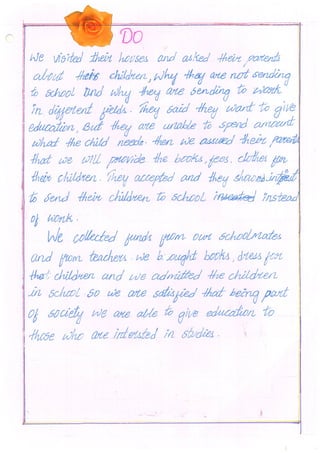 DO
We visited their houses and asked their parents
about their children, why they are not sending
to school and why they are sending to work
in different fields. They said they want to give
education, But they are unable to spend amount
what the child needs. then we assured their parents
that we will provide the books, fees, clothes for
their children. They accepted and they shows intrest
to send their children to school instead
of work.
We collected funds from our schoolmates
and from teachers. we bought books, dress for
that children and we admitted the children
in school so we are satisfied that being part
of society we are able to give education to
those who are intersted in studies.